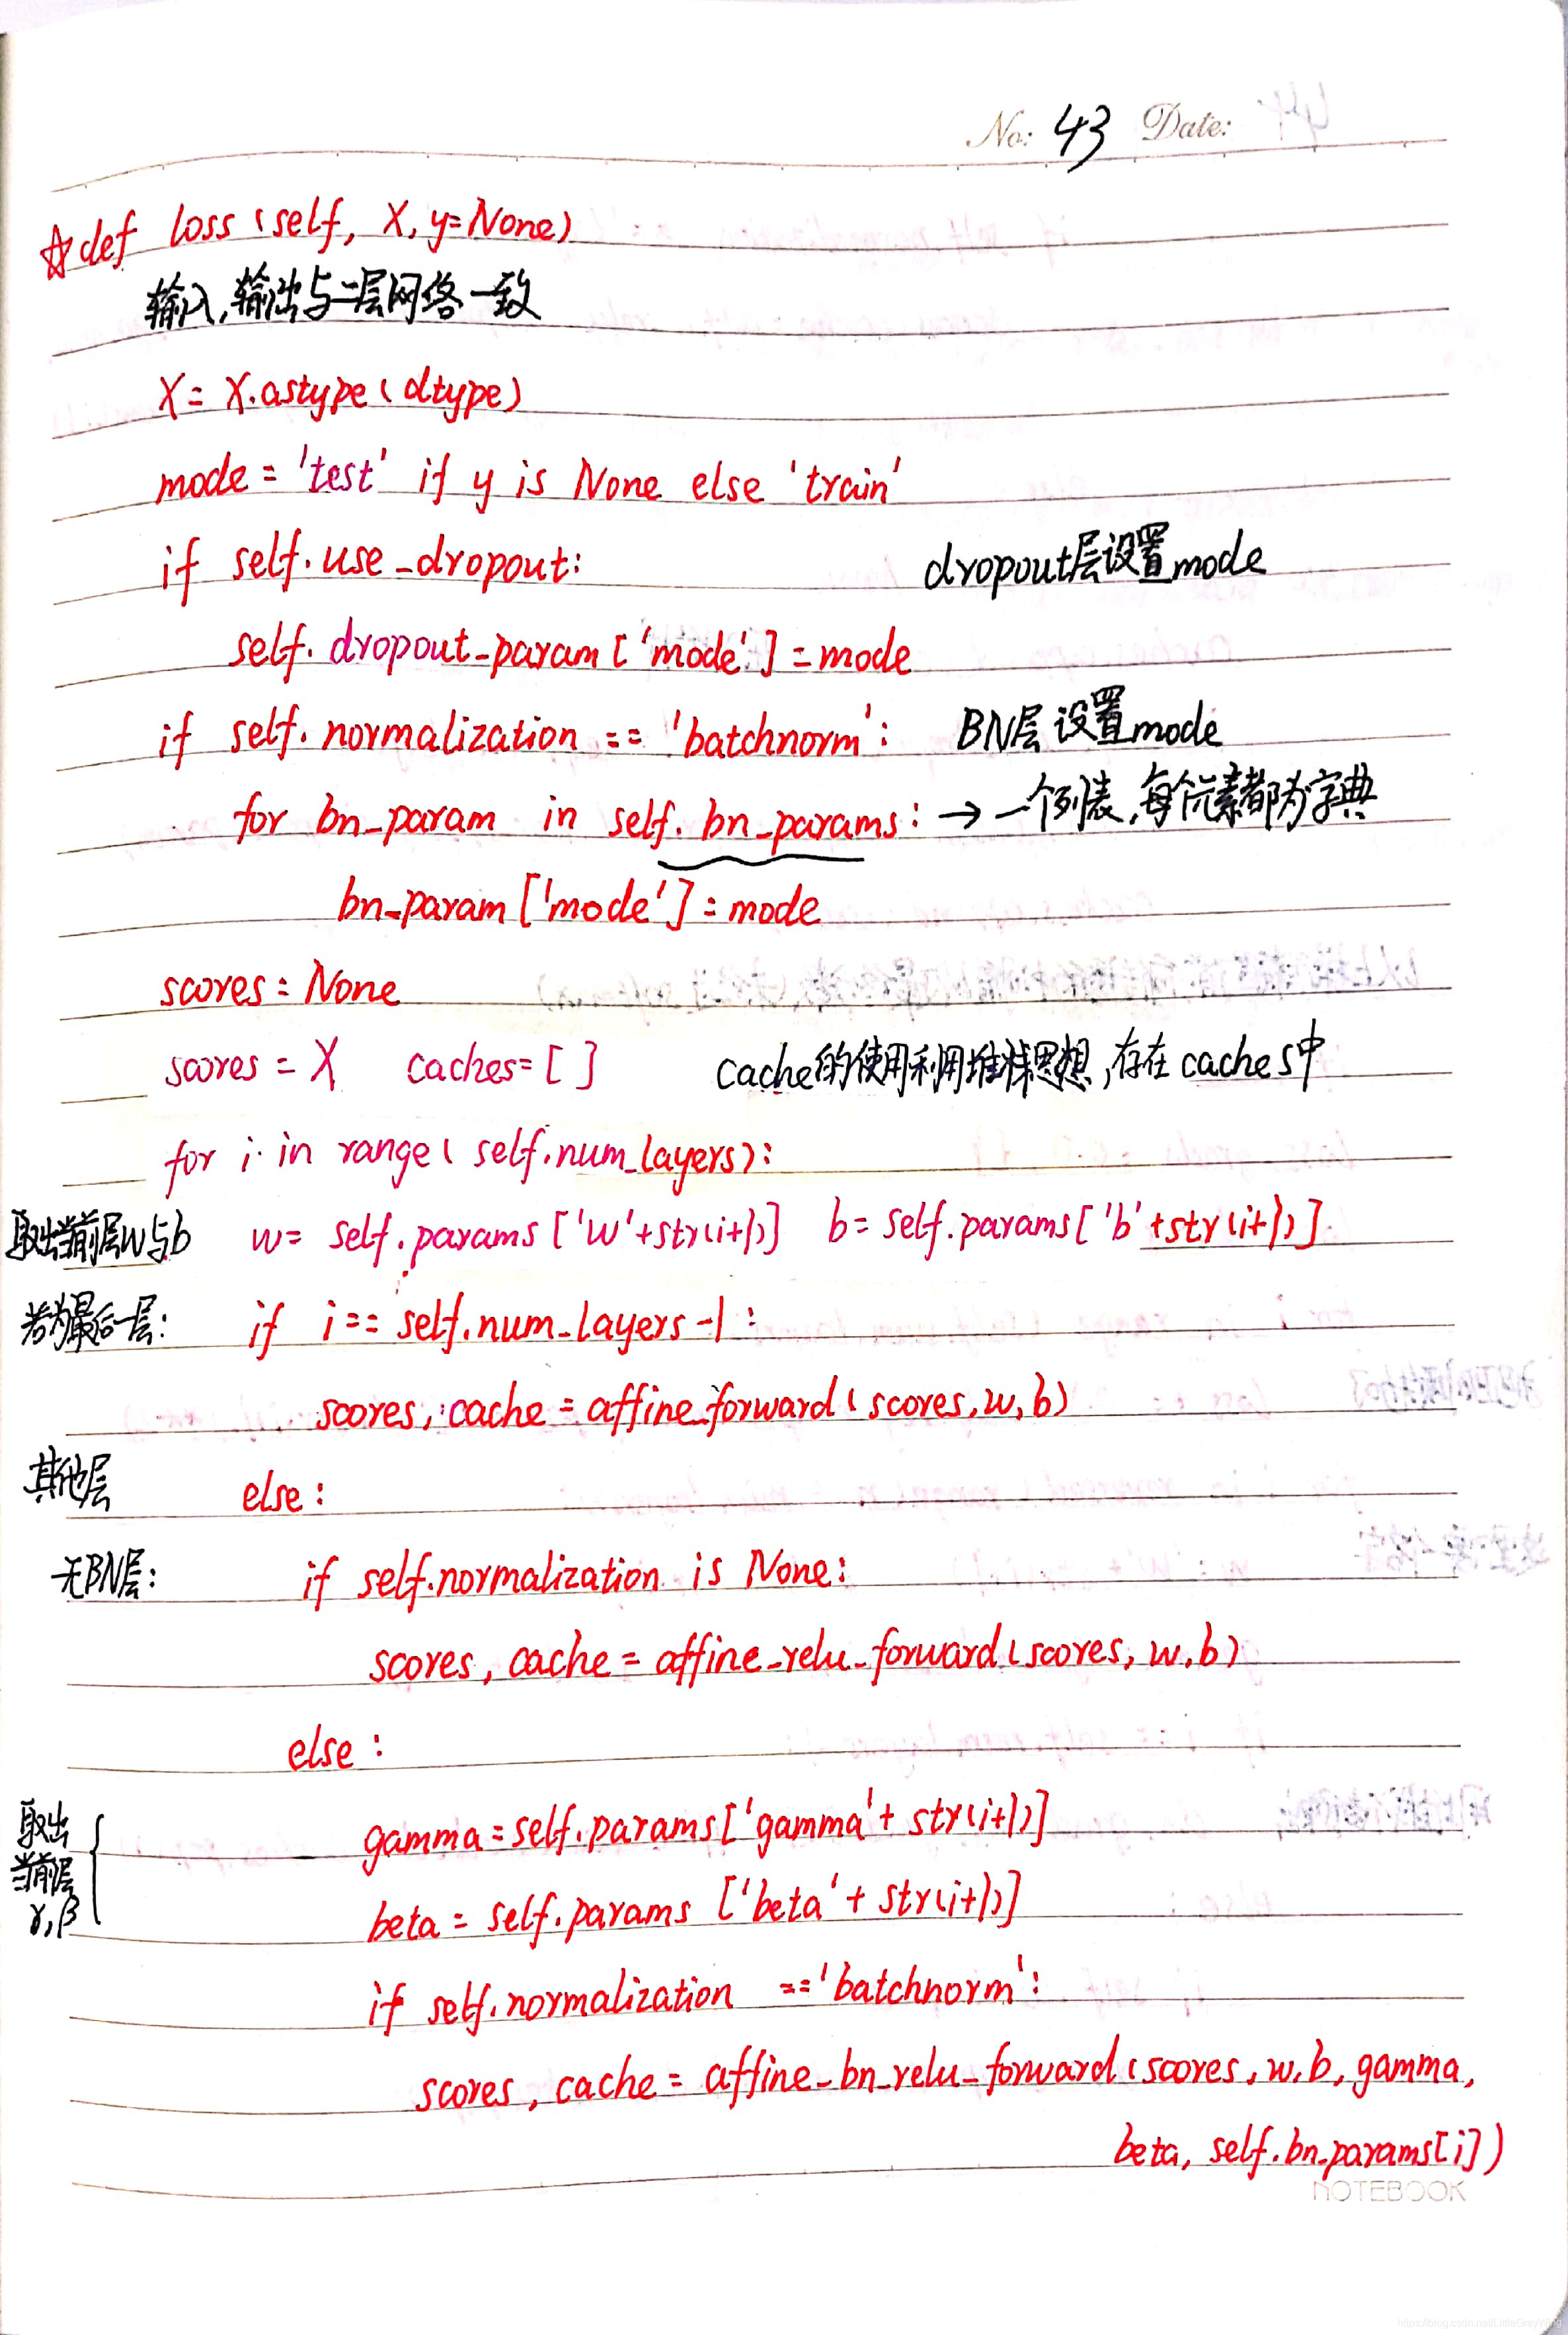 No: 43 Date:
☆def loss (self, X, y=None)
输入,输出与二层网络一致
X = X.astype(dtype)
mode = 'test' if y is None else 'train'
if self.use_dropout: dropout层设置mode
self.dropout_param['mode'] = mode
if self.normalization == 'batchnorm': BN层设置mode
for bn_param in self.bn_params: → 一个列表,每个元素都为字典
bn_param['mode'] = mode
scores = None
scores = X caches = [] cache的使用利用堆栈思想,存在caches中
for i in range(self.num_layers):
取出当前层w与b w = self.params['W'+str(i+1)] b = self.params['b'+str(i+1)]
若为最后一层: if i == self.num_layers-1:
scores, cache = affine_forward(scores, w, b)
其他层 else:
无BN层: if self.normalization is None:
scores, cache = affine_relu_forward(scores, w, b)
else:
取出当前层γ,β gamma = self.params['gamma' + str(i+1)]
beta = self.params['beta' + str(i+1)]
if self.normalization == 'batchnorm':
scores, cache = affine_bn_relu_forward(scores, w, b, gamma,
beta, self.bn_params[i])
NOTEBOOK